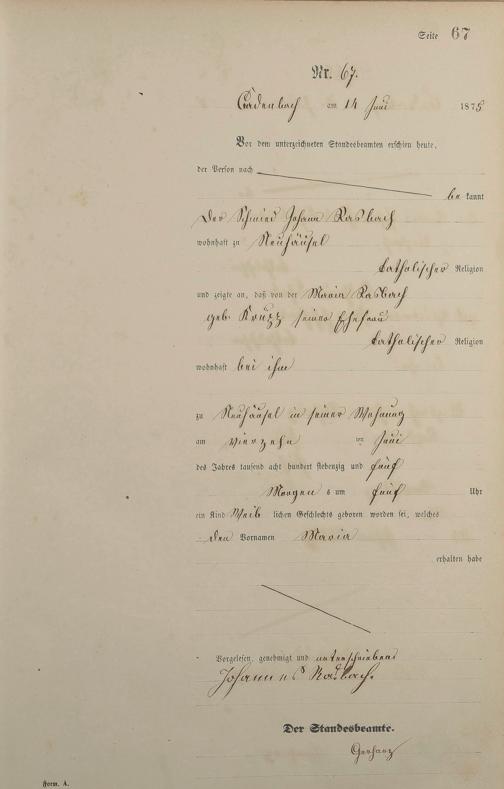 Seite 67
Nr. 67.
Cadenbach am 14 Juni 1875
Vor dem unterzeichneten Standesbeamten erschien heute,
der Person nach
be kannt
Der Schmied Johann Rasbach
wohnhaft zu Neuhäusel
katholischer Religion
und zeigte an, daß von der Maria Rasbach
geb. seiner Ehefrau
katholischer Religion
wohnhaft bei ihm
zu Neuhäusel in seiner Wohnung
am vierzehn ten Juni
des Jahres tausend acht hundert siebenzig und fünf
Morgen s um fünf Uhr
ein Kind Weib lichen Geschlechts geboren worden sei, welches
den Vornamen Maria
erhalten habe
Vorgelesen, genehmigt und unterschrieben
Johannes Rasbach.
Der Standesbeamte.
Gerharz
Form. A.